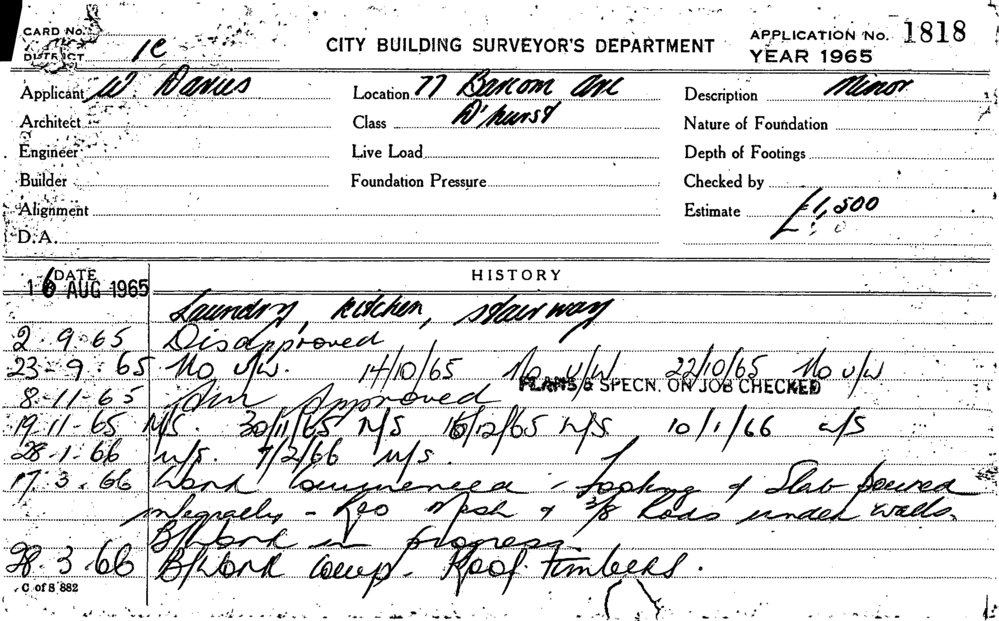 CARD No.
DISTRICT 1C
CITY BUILDING SURVEYOR'S DEPARTMENT
APPLICATION No. 1818
YEAR 1965
Applicant W. Davies
Location 77 Barcom Ave
Description Minor
Architect
Class D'hurst
Nature of Foundation
Engineer
Live Load
Depth of Footings
Builder
Foundation Pressure
Checked by
Alignment
Estimate £1,500
D.A.
DATE
HISTORY
16 AUG 1965
Laundry, kitchen, stairway
2.9.65 Disapproved
23-9-65 No U/W. 14/10/65 No U/W 22/10/65 No U/W
PLANS & SPECN. ON JOB CHECKED
8-11-65 Approved
19-11-65 N/S. 30/11/65 N/S 16/12/65 N/S. 10/1/66 N/S
28.1.66 N/S. 7/2/66 N/S.
17.3.66 Work commenced - footing & Slab poured
integrally - Reo Mesh & 3/8 Rods under walls.
B/Work in progress.
28.3.66 B/Work comp. Roof timbers.
C of S 882